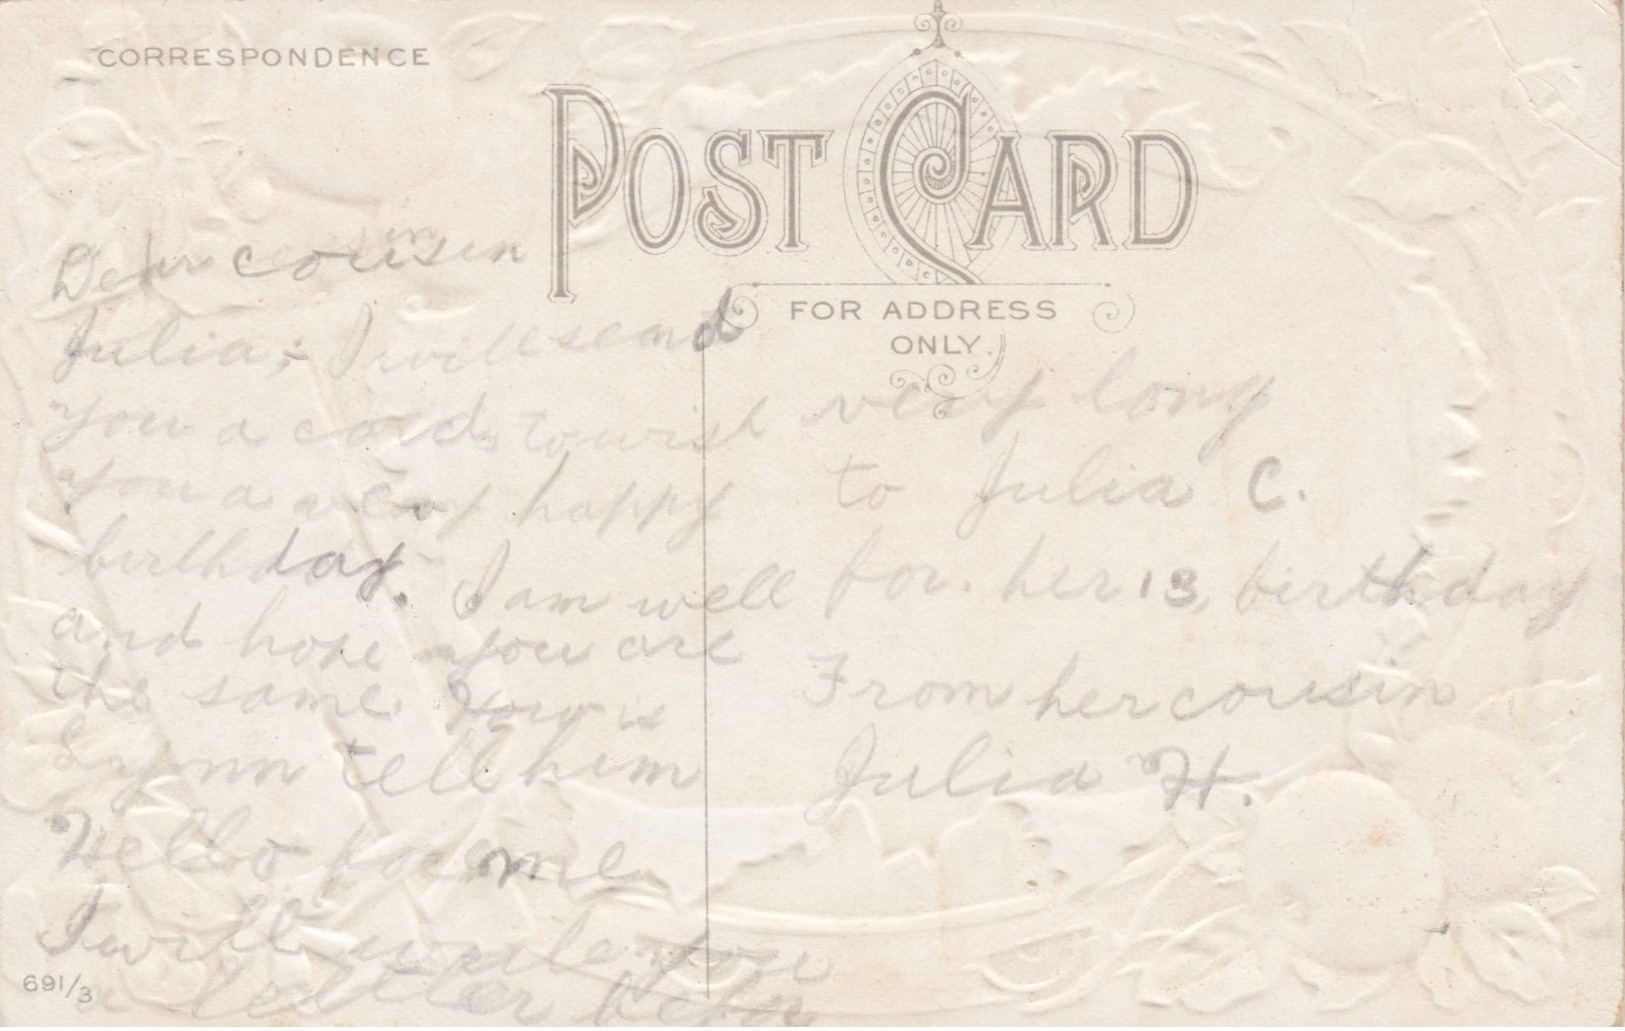 CORRESPONDENCE
POST CARD
FOR ADDRESS
ONLY.
Dear cousin
Julia; I will send
you a card to wish
you a very happy
birthday. I am well
and hope you are
the same. How is
Lynn tell him
Hello for me
I will write you
a letter befor
very long
to Julia C.
for. her 13, birthday
From her cousin
Julia H.
691/3